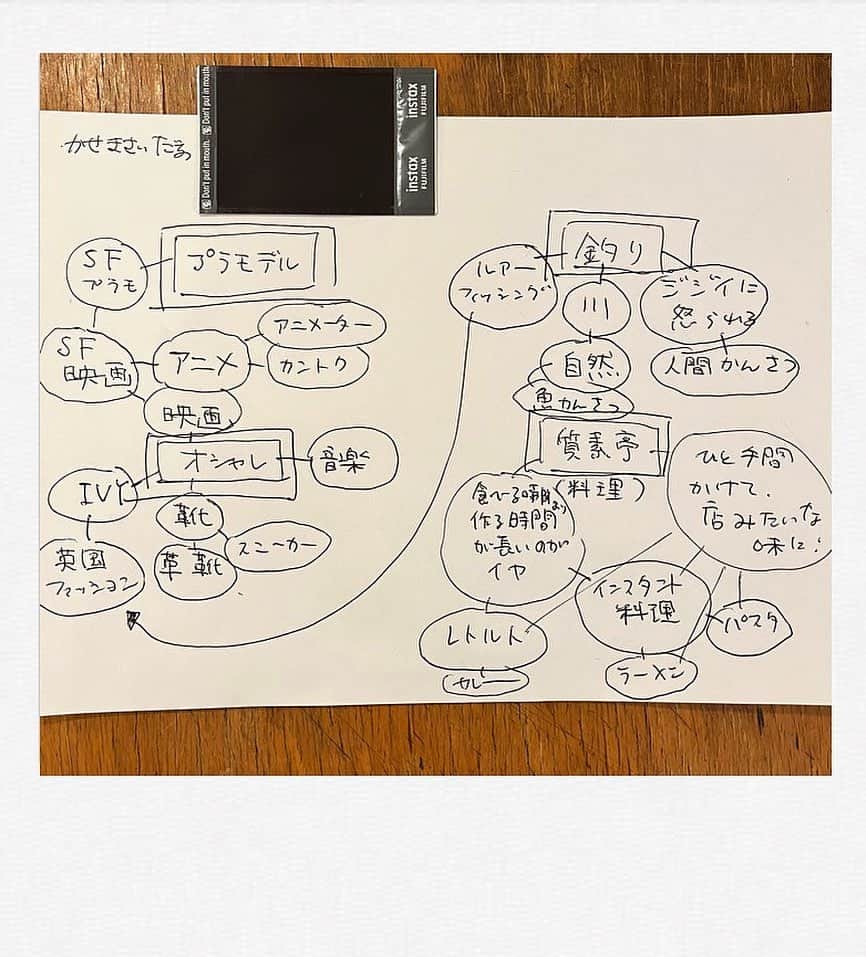 かせきさいだぁ
Don't put in mouth.
Don't put in mouth.
instax
FUJIFILM
instax
FUJIFILM
プラモデル
SF
プラモ
SF
映画
アニメ
アニメーター
カントク
映画
オシャレ
音楽
IVY
英国
ファッション
靴
スニーカー
革靴
釣り
ルアー
フィッシング
川
自然
魚かんさつ
ジジイに
怒られる
人間かんさつ
質素亭
(料理)
食べる時間より
作る時間
が長いのが
イヤ
ひと手間
かけて、
店みたいな
味に!
インスタント
料理
レトルト
カレー
ラーメン
パスタ